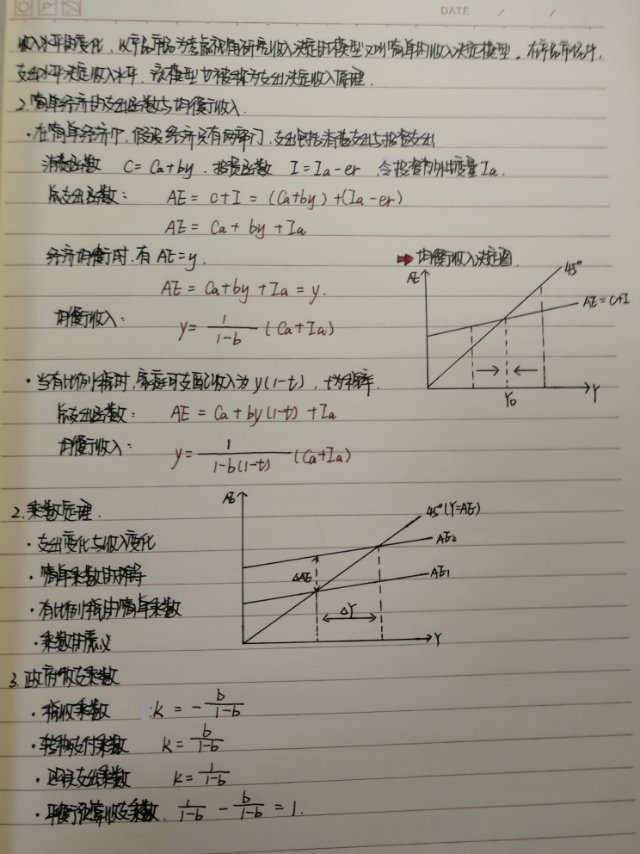 DATE / /
收入水平的变化，以产品市场为考虑视角研究收入决定的模型又叫简单的收入决定模型。在产品市场中，
支出水平决定收入水平，该模型也被称为支出决定收入原理.
2.简单经济的支出函数与均衡收入
·在简单经济下，假设经济只有两部门，支出包括消费支出与投资支出
消费函数 C=Ca+by，投资函数 I=Ia-er 令投资为外生变量Ia.
总支出函数： AE=C+I=(Ca+by)+(Ia-er)
AE=Ca+by+Ia
经济均衡时，有AE=y.
AE=Ca+by+Ia=y.
均衡收入： y=1/(1-b) (Ca+Ia)
➡均衡收入决定图.
AE
45°
AE=C+I
Y0
Y
·当有比例税时，家庭可支配收入为y(1-t)，t为税率.
总支出函数： AE=Ca+by(1-t)+Ia
均衡收入： y=1/(1-b(1-t)) (Ca+Ia)
2.乘数原理.
·支出变化与收入变化
·简单乘数的理解
·有比例税的简单乘数
·乘数的意义
AE
45°(Y=AE)
AE2
AE1
ΔAE
ΔY
Y
3.政府收支乘数
·税收乘数 k=-b/(1-b)
·转移支付乘数 k=b/(1-b)
·购买支出乘数 k=1/(1-b)
·平衡预算收支乘数. 1/(1-b)-b/(1-b)=1.